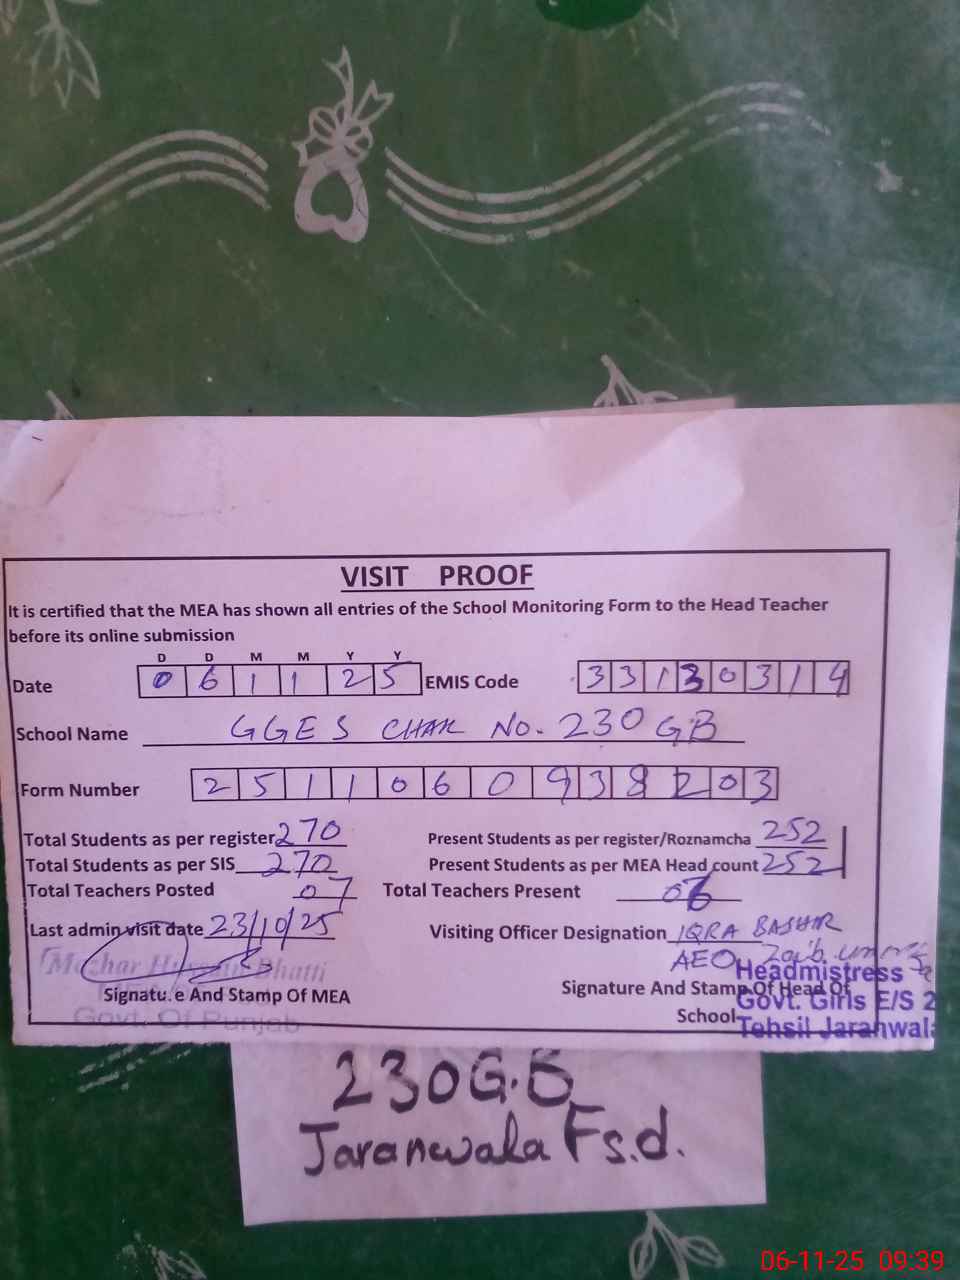 VISIT PROOF
It is certified that the MEA has shown all entries of the School Monitoring Form to the Head Teacher
before its online submission
D D M M Y Y
Date 0 6 1 1 2 5 EMIS Code 3 3 1 3 0 3 1 4
School Name GGES CHAK No. 230 GB
Form Number 2 5 1 1 0 6 0 9 3 8 2 0 3
Total Students as per register 270 Present Students as per register/Roznamcha 252
Total Students as per SIS 270 Present Students as per MEA Head count 252
Total Teachers Posted 07 Total Teachers Present 06
Last admin visit date 23/10/25 Visiting Officer Designation IQRA BASHIR
AEO
Mazhar Hussain Bhatti
Signature And Stamp Of MEA Signature And Stamp Of Head Of
School
Govt. Of Punjab
Headmistress
Govt. Girls E/S 2
Tehsil Jaranwala
230G.B
Jaranwala Fs.d.
06-11-25 09:39